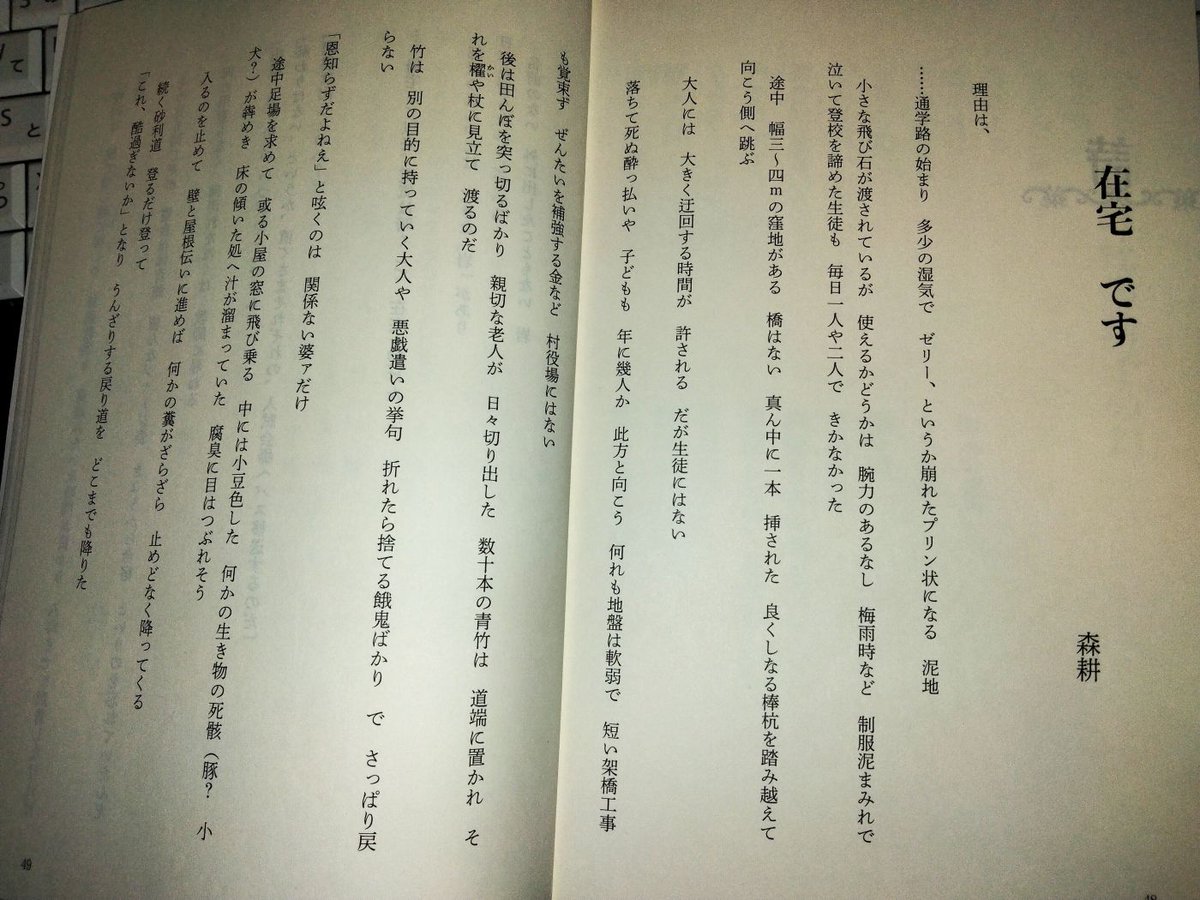 在宅　です
森耕
理由は、
……通学路の始まり　多少の湿気で　ゼリー、というか崩れたプリン状になる　泥地
小さな飛び石が渡されているが　使えるかどうかは　腕力のあるなし　梅雨時など　制服泥まみれで
泣いて登校を諦めた生徒も　毎日一人や二人で　きかなかった
途中　幅三～四ｍの窪地がある　橋はない　真ん中に一本　挿された　良くしなる棒杭を踏み越えて
向こう側へ跳ぶ
大人には　大きく迂回する時間が　許される　だが生徒にはない
落ちて死ぬ酔っ払いや　子どもも　年に幾人か　此方と向こう　何れも地盤は軟弱で　短い架橋工事
も覚束ず　ぜんたいを補強する金など　村役場にはない
後は田んぼを突っ切るばかり　親切な老人が　日々切り出した　数十本の青竹は　道端に置かれ　そ
れを櫂や杖に見立て　渡るのだ
かい
竹は　別の目的に持っていく大人や　悪戯遣いの挙句　折れたら捨てる餓鬼ばかり　で　さっぱり戻
らない
「恩知らずだよねえ」と呟くのは　関係ない婆ァだけ
途中足場を求めて　或る小屋の窓に飛び乗る　中には小豆色した　何かの生き物の死骸（豚？　小
犬？）が犇めき　床の傾いた処へ汁が溜まっていた　腐臭に目はつぶれそう
入るのを止めて　壁と屋根伝いに進めば　何かの糞がざらざら　止めどなく降ってくる
続く砂利道　登るだけ登って
「これ、酷過ぎないか」となり　うんざりする戻り道を　どこまでも降りた
49